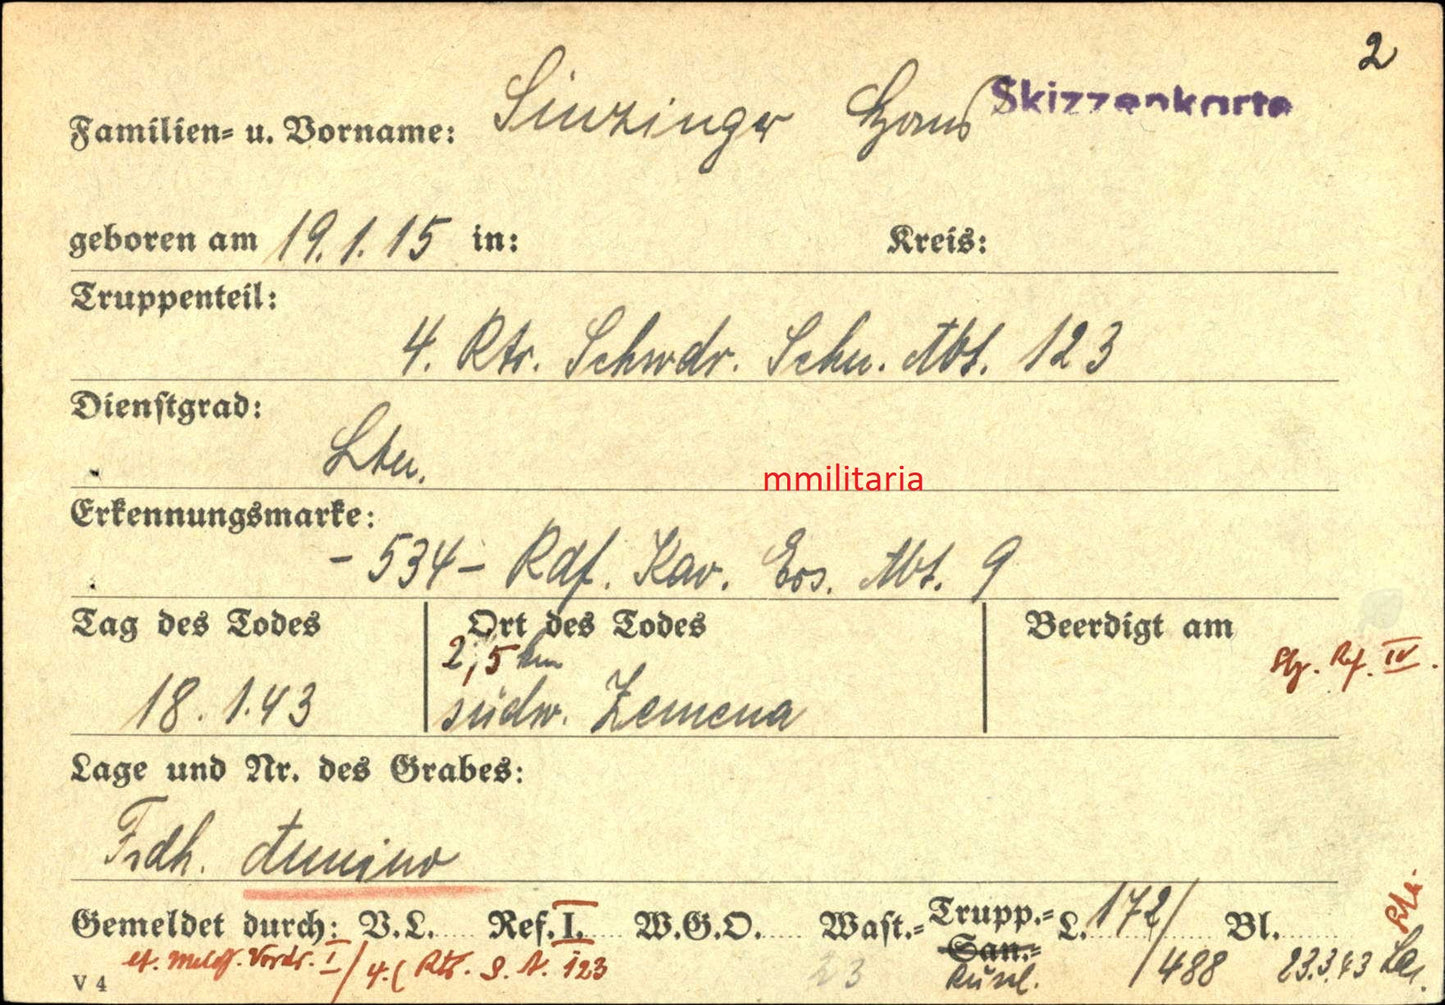 2
Familien- u. Vorname: Sinzinger Hans Skizzenkarte
geboren am 19.1.15 in: Kreis:
Truppenteil:
4. Rtr. Schwdr. Schn. Abt. 123
Dienstgrad:
Ltn.
mmilitaria
Erkennungsmarke:
- 534 - Rdf. Kav. Ers. Abt. 9
Tag des Todes Ort des Todes Beerdigt am
2,5 km
18.1.43 südw. Zemena
Lage und Nr. des Grabes:
Frdh.
Gemeldet durch: V.L. Ref. I. W.G.O. Wast.- Trupp.- L. 172/ Bl.
San.-
/488 23.3.43
lt. Vordr. I / 4. ( Rtr. S. A. 123
23
V 4